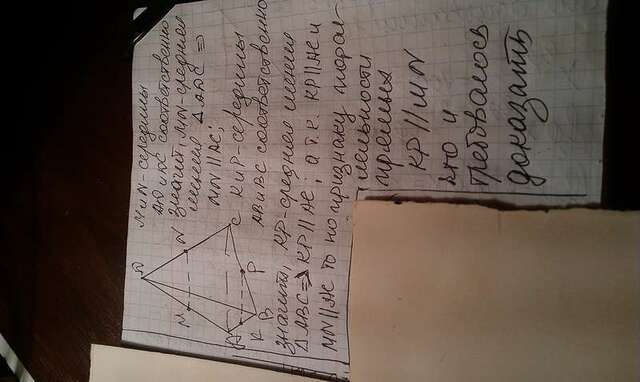 M и N - середины
AD и DC соответственно
Значит, MN - средняя
линия △ADC ⇒
MN || AC;
K и P - середины
AB и BC соответственно
значит, KP - средняя линия
△ABC ⇒ KP || AC, а т.к. KP || AC и
MN || AC то по признаку парал-
лельности
прямых
KP || MN
что и
требовалось
доказать
D
M
N
A
C
K
B
P